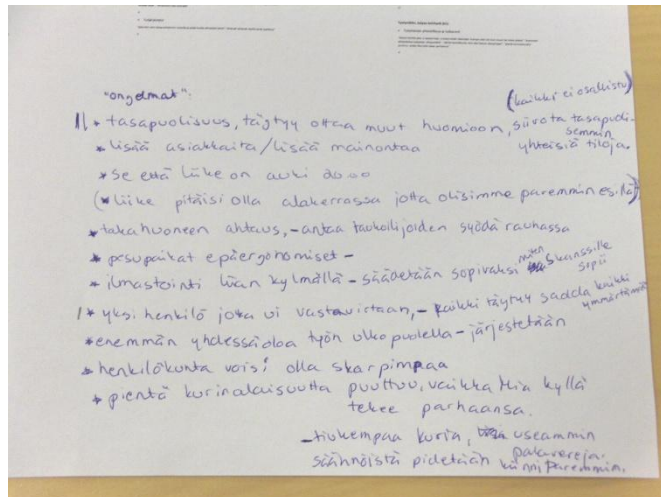 "ongelmat":
(kaikki ei osallistu)
|| * tasapuolisuus, täytyy ottaa muut huomioon, siivota tasapuoli-
semmin
* lisää asiakkaita/lisää mainontaa yhteisiä tiloja.
* se että liike on auki 20.00
(* liike pitäisi olla alakerrassa jotta olisimme paremmin esillä)
* takahuoneen ahtaus, - antaa taukoilijoiden syödä rauhassa
* pesupaikat epäergonomiset -
* ilmastointi liian kylmällä - säädetään sopivaksi miten skanssille
sopii
| * yksi henkilö joka ui vastavirtaan, - kaikki täytyy saada kaikki
ymmärtämään
* enemmän yhdessäoloa työn ulkopuolella - järjestetään
* henkilökunta voisi olla skarpimpaa
* pientä kurinalaisuutta puuttuu, vaikka Mia kyllä
tekee parhaansa.
- tiukempaa kuria, useammin
palavereja.
säännöistä pidetään kiinni paremmin.